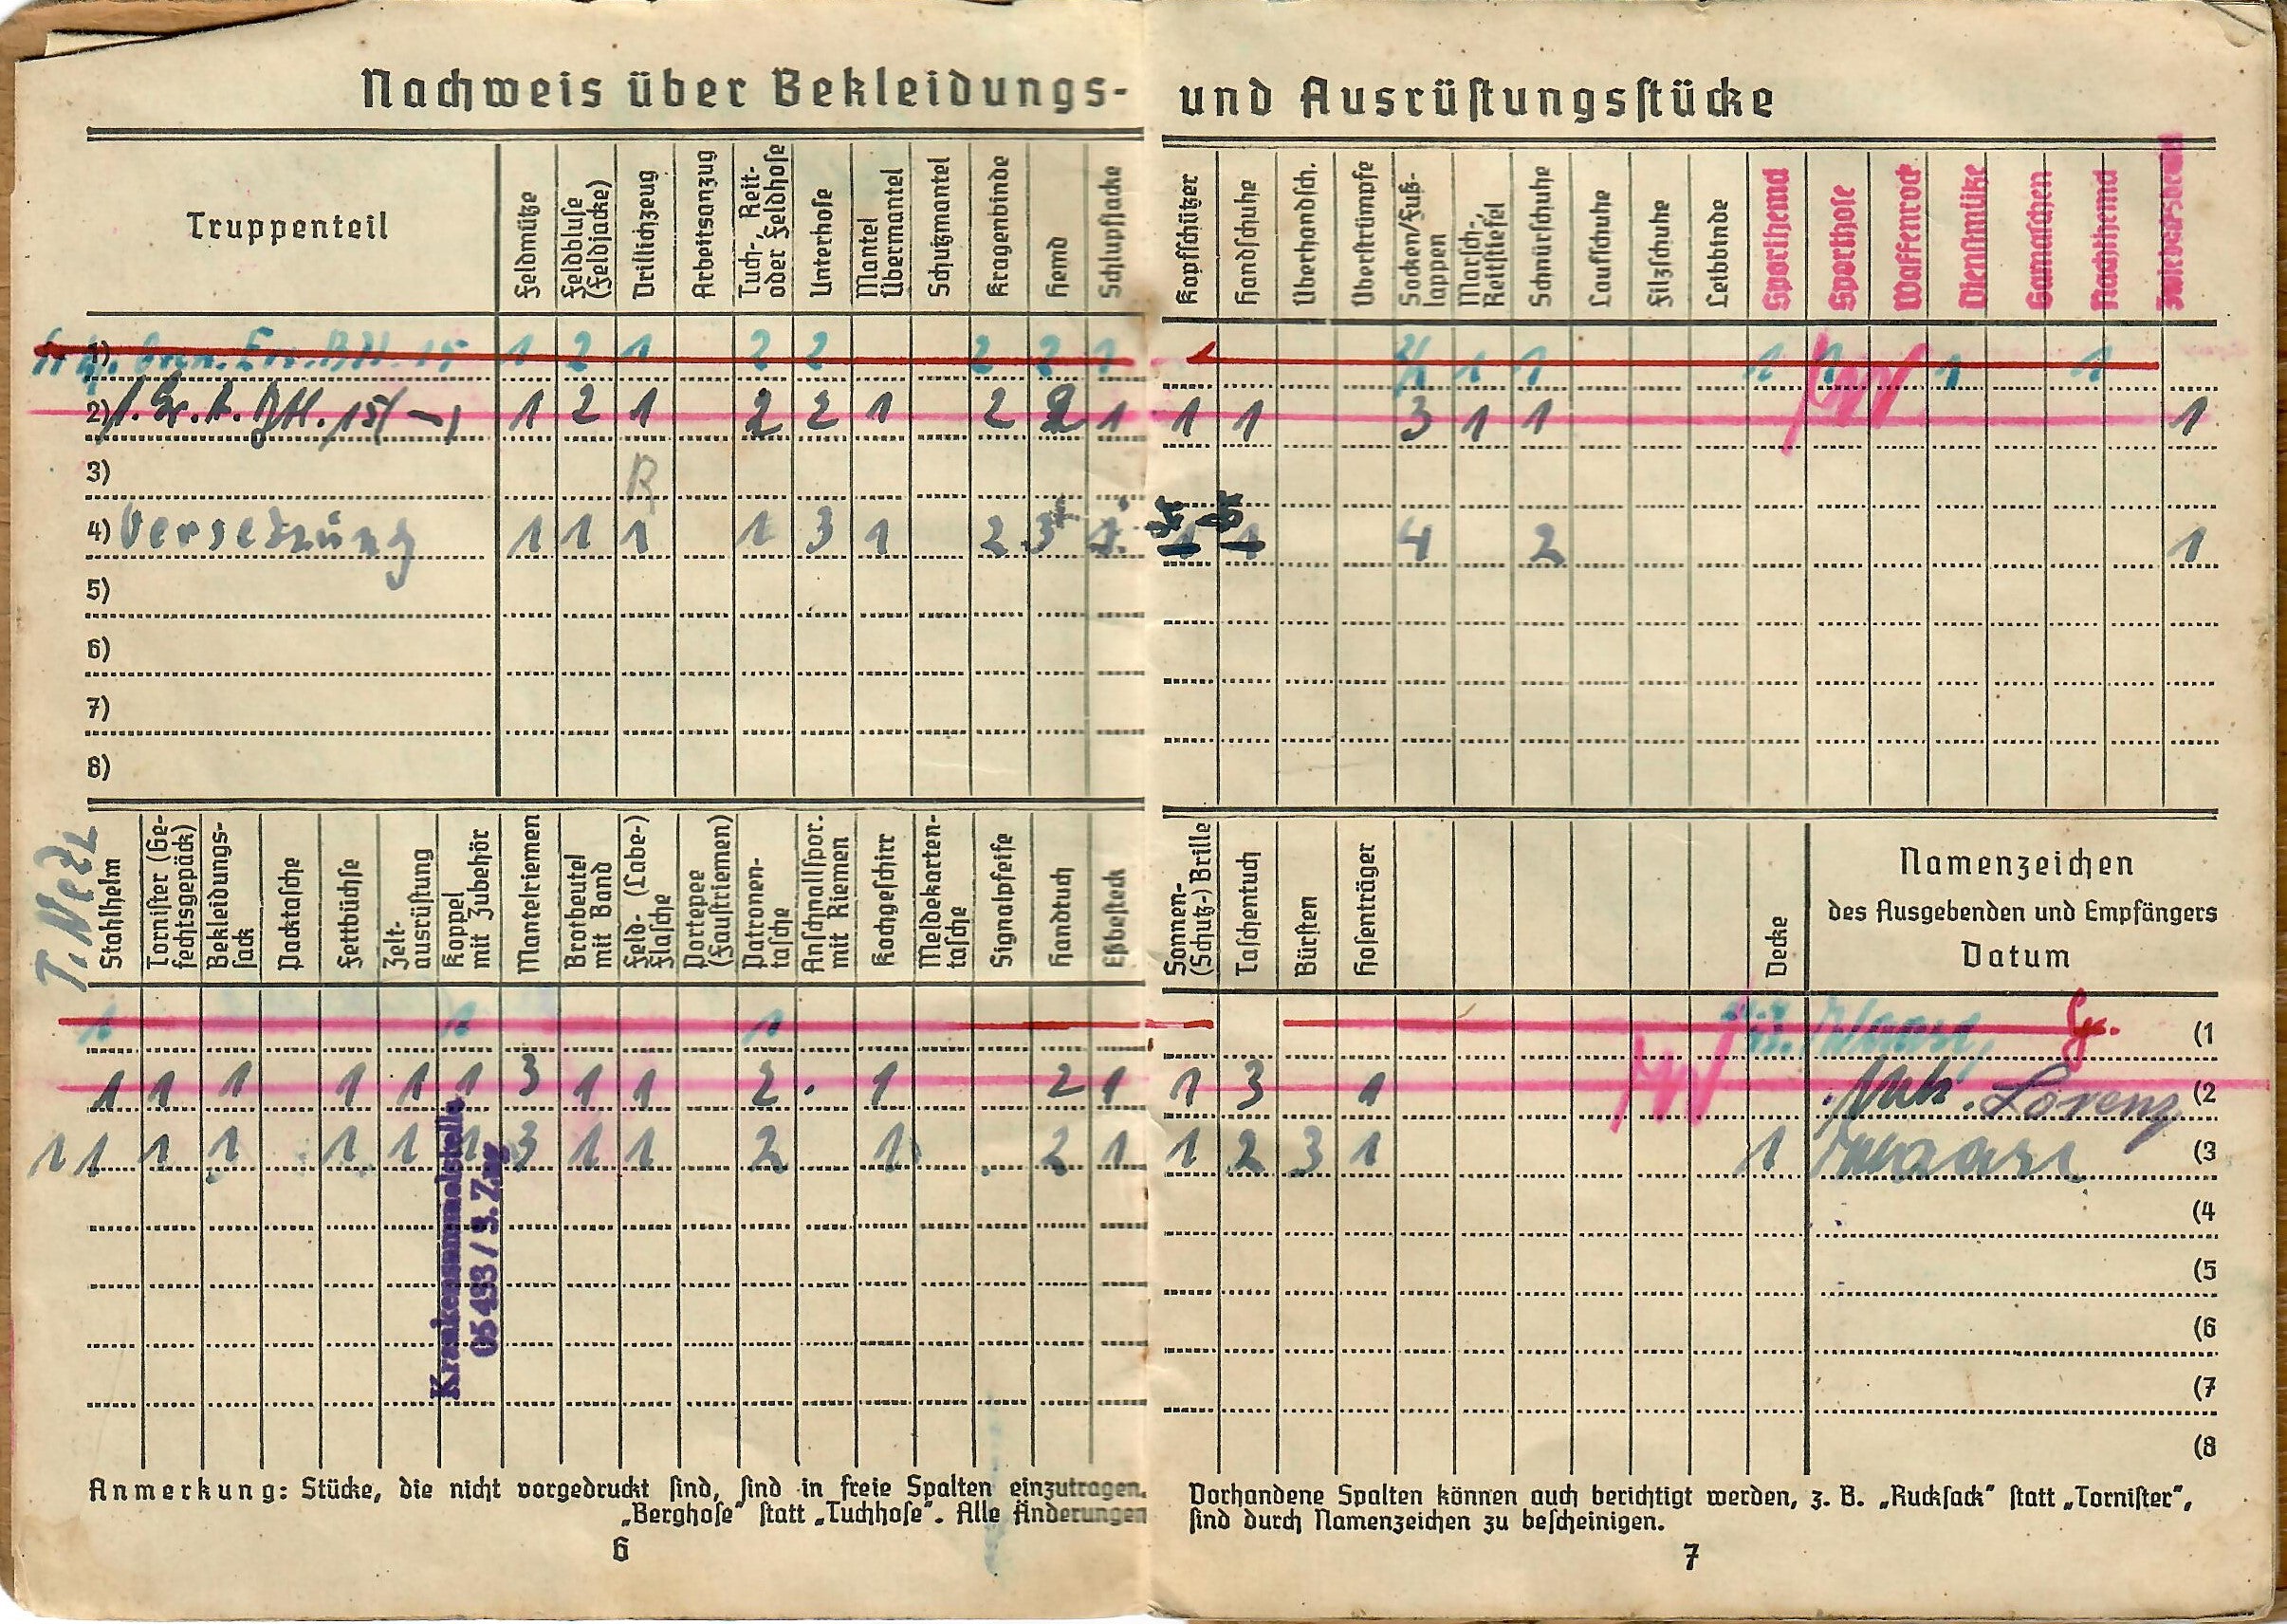 Nachweis über Bekleidungs- und Ausrüstungsstücke
Truppenteil
Feldmütze
Feldbluse (Feldjacke)
Drillichzeug
Arbeitsanzug
Tuch-, Reit- oder Feldhose
Unterhose
Mantel Übermantel
Schutzmantel
Kragenbinde
Hemd
Schlupfjacke
Kopfschützer
Handschuhe
Überhandsch.
Überstrümpfe
Socken/Fuß-lappen
Marsch-, Reitstiefel
Schnürschuhe
Laufschuhe
Filzschuhe
Leibbinde
Sporthemd
Sporthose
Waffenrock
Dienstmütze
Gamaschen
Nachthemd
1) 1 2 1 2 2 2 2 1 1 1 1 1 1 1
2) 1 2 1 2 2 1 2 2 1 1 1 3 1 1 1
3) R
4) Versetzung 1 1 1 1 3 1 2 3 1 1 1 4 2 1
5)
6)
7)
8)
Stahlhelm
Tornister (Ge-fechtsgepäck)
Bekleidungs-sack
Packtasche
Fettbüchse
Zelt-ausrüstung
Koppel mit Zubehör
Mantelriemen
Brotbeutel mit Band
Feld- (Labe-) flasche
Portepee (Faustriemen)
Patronen-tasche
Anschnallspor. mit Riemen
Kochgeschirr
Meldekarten-tasche
Signalpfeife
Handtuch
Eßbesteck
Sonnen- (Schutz-) Brille
Taschentuch
Bürsten
Hosenträger
Decke
Namenzeichen
des Ausgebenden und Empfängers
Datum
1 1 1 (1
1 1 1 1 1 1 3 1 1 2 1 2 1 1 3 1 Lorenz (2
1 1 1 1 1 1 1 3 1 1 2 1 2 1 1 2 3 1 1 (3
(4
(5
(6
(7
(8
Krankensammelstelle
05 493 / 3. Zug
Anmerkung: Stücke, die nicht vorgedruckt sind, sind in freie Spalten einzutragen.
„Berghose“ statt „Tuchhose“. Alle Änderungen
6
Vorhandene Spalten können auch berichtigt werden, z. B. „Rucksack“ statt „Tornister“,
sind durch Namenzeichen zu bescheinigen.
7